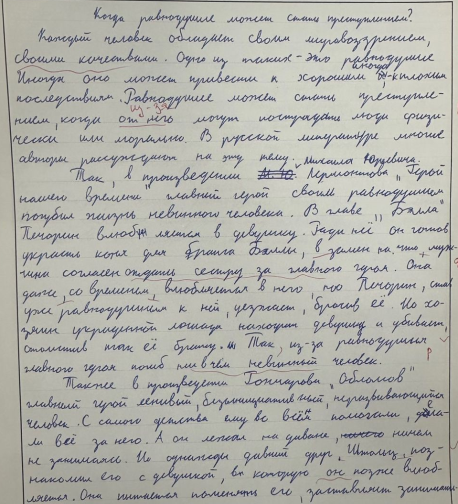 Когда равнодушие может стать преступлением?
Каждый человек обладает своим мировоззрением,
своими качествами. Одно из таких - это равнодушие
Иногда оно может привести к хорошим иногда к плохим
последствиям. Равнодушие может стать преступле-
из-за
нием, когда от него могут пострадать люди физи-
чески или морально. В русской литературе многие
авторы рассуждают на эту тему.
Так, в произведении М.Ю. Михаила Юрьевича Лермонтова "Герой
нашего времени" главный герой своим равнодушием
погубил жизнь невинного человека. В главе "Бэлла"
Печорин влюбляется в девушку. Ради неё он готов
украсть коня для брата Бэллы, в замен на что, муж-
чина согласен отдать сестру за главного героя. Она
даже, со временем, влюбляется в него, но Печорин, став
уже равнодушным к ней, уезжает, бросив её. Но хо-
зяин украденной лошади находит девушку и убивает,
отомстив так её брату. Так, из-за равнодушия
главного героя погиб ни в чём невинный человек.
Также в произведении Гончарова "Обломов"
главный герой ленивый, безынициативный, неразвивающийся
человек. С самого детства ему во всём помогали, дела-
ли всё за него. А он лежал на диване, ничем
не занимался. Но однажды давний друг, Штольц, поз-
накомил его с девушкой, в которую он позже влюб-
ляется. Она пытается поменять его, заставляет занимать-